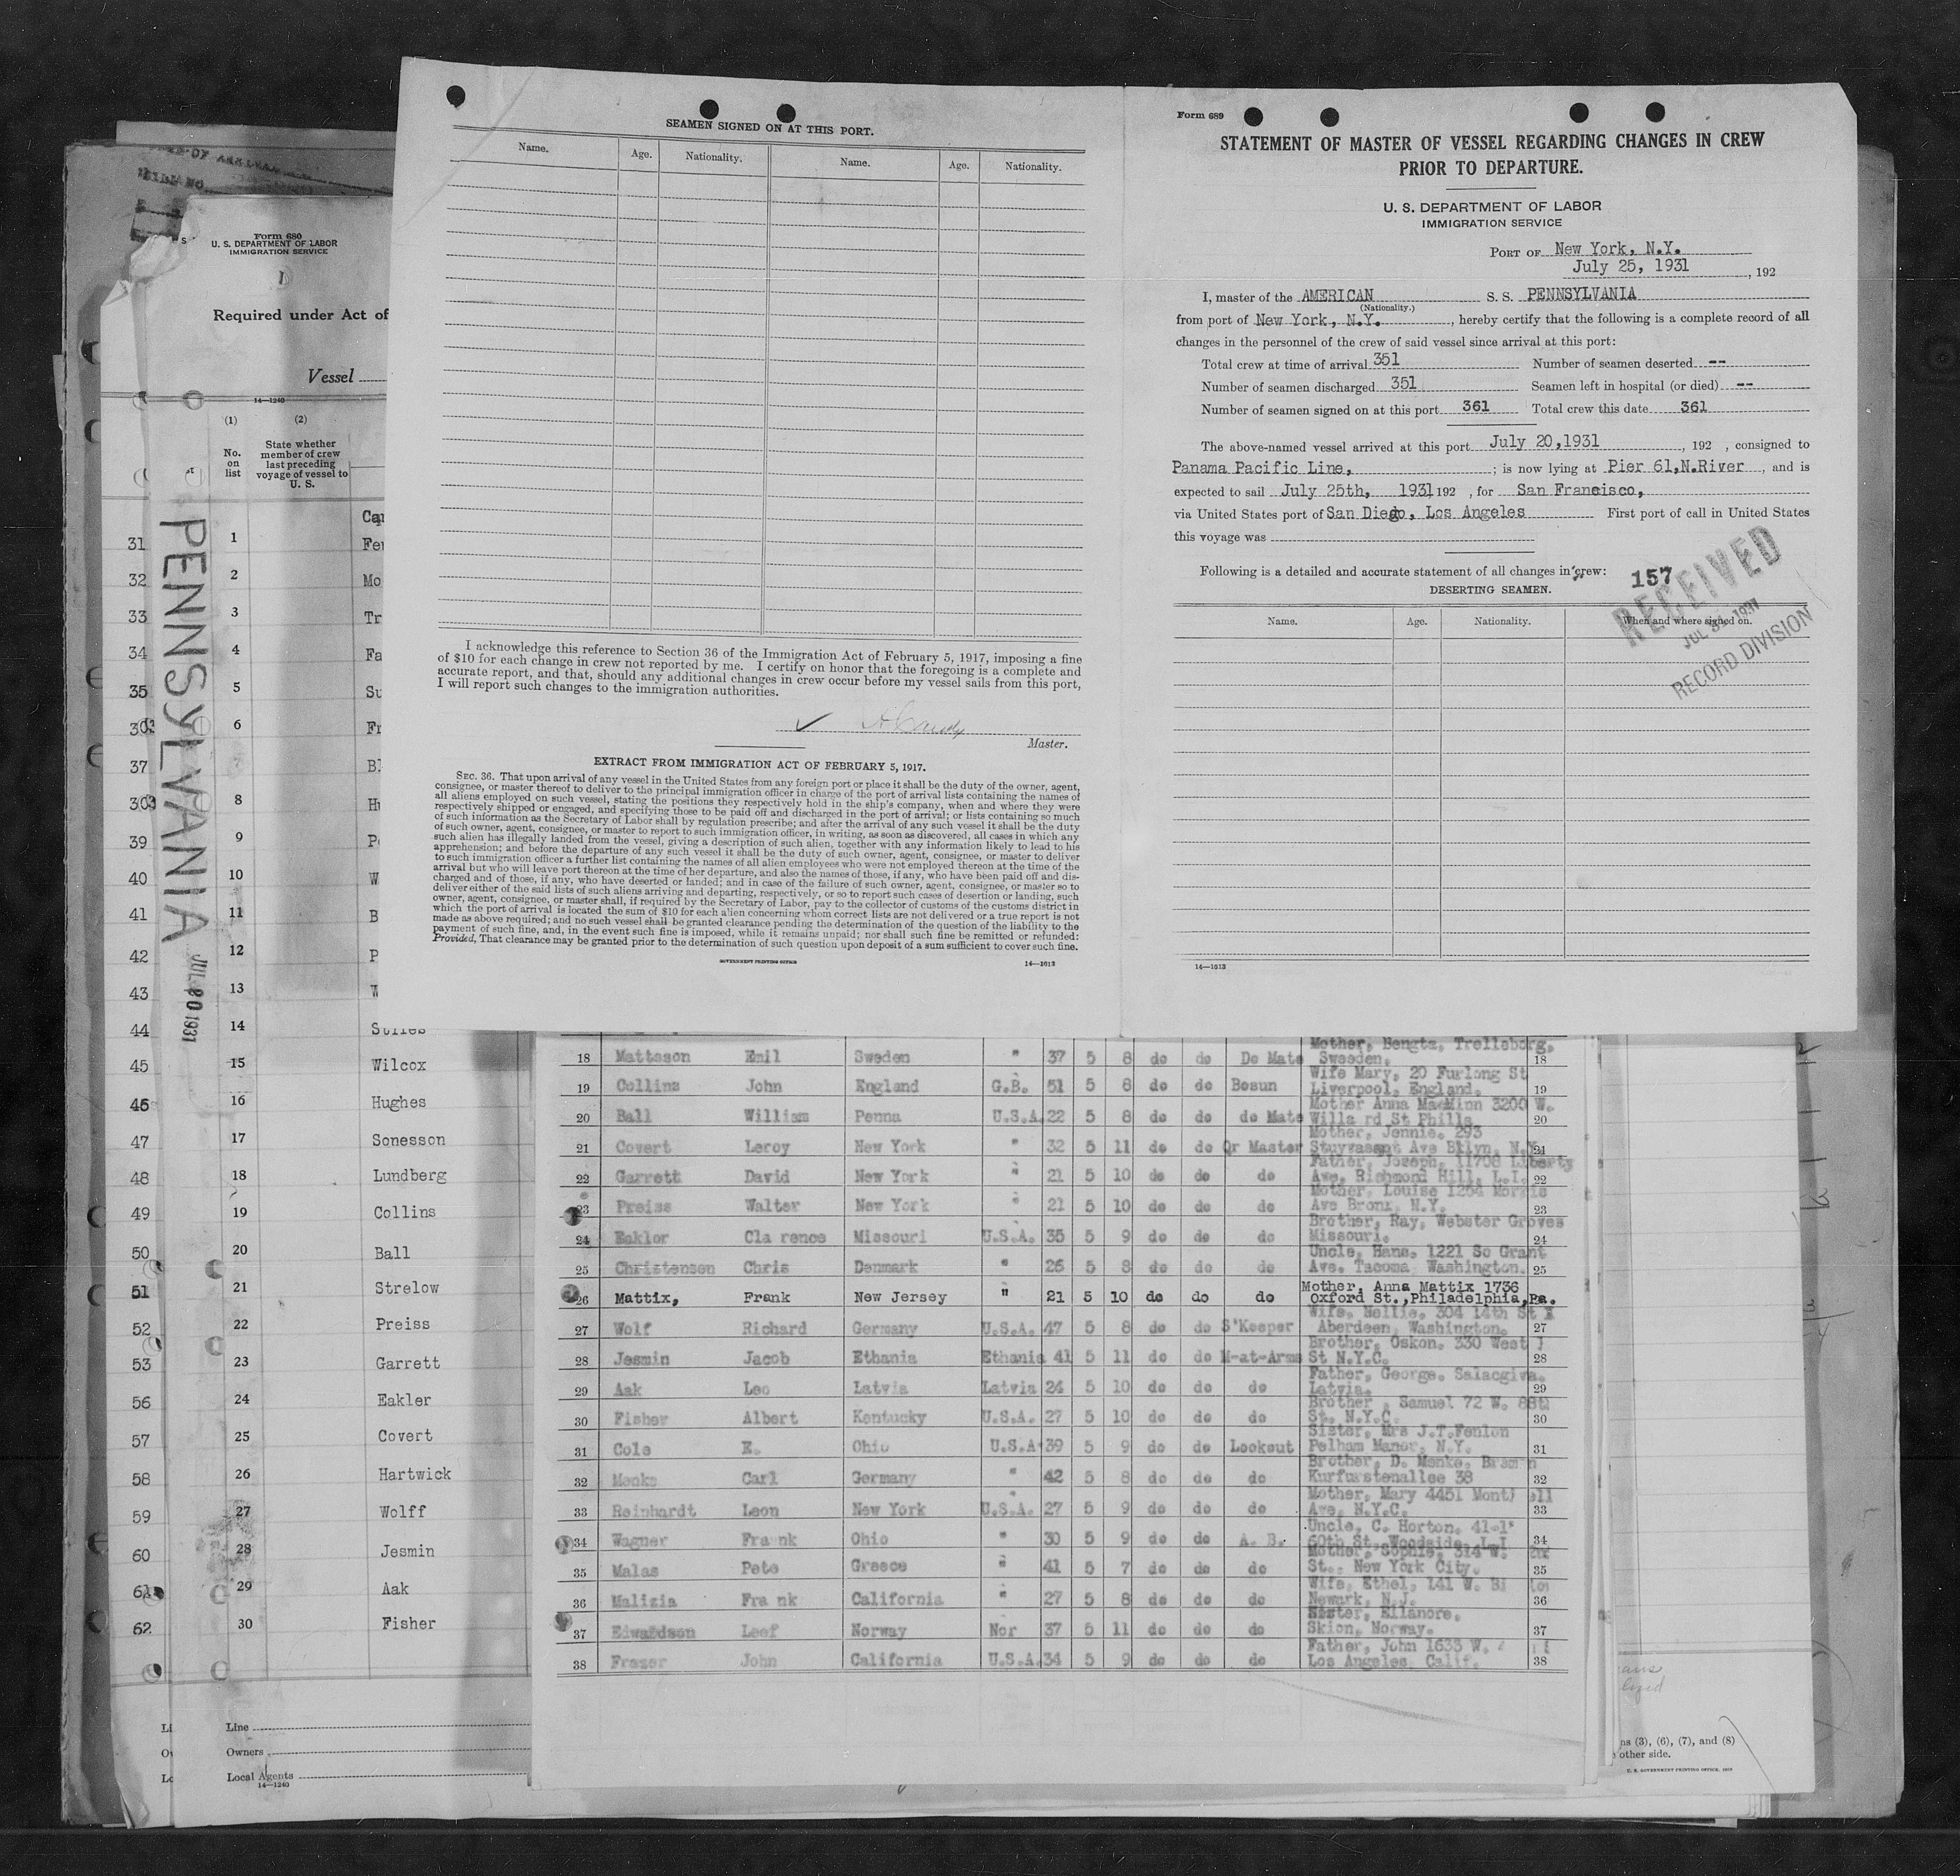 SEAMEN SIGNED ON AT THIS PORT.
Name. Age. Nationality. Name. Age. Nationality.
I acknowledge this reference to Section 36 of the Immigration Act of February 5, 1917, imposing a fine
of $10 for each change in crew not reported by me. I certify on honor that the foregoing is a complete and
accurate report, and that, should any additional changes in crew occur before my vessel sails from this port,
I will report such changes to the immigration authorities.
Master.
EXTRACT FROM IMMIGRATION ACT OF FEBRUARY 5, 1917.
SEC. 36. That upon arrival of any vessel in the United States from any foreign port or place it shall be the duty of the owner, agent,
consignee, or master thereof to deliver to the principal immigration officer in charge of the port of arrival lists containing the names of
all aliens employed on such vessel, stating the positions they respectively hold in the ship's company, when and where they were
respectively shipped or engaged, and specifying those to be paid off and discharged in the port of arrival; or lists containing so much
of such information as the Secretary of Labor shall by regulation prescribe; and after the arrival of any such vessel it shall be the duty
of such owner, agent, consignee, or master to report to such immigration officer, in writing, as soon as discovered, all cases in which any
such alien has illegally landed from the vessel, giving a description of such alien, together with any information likely to lead to his
apprehension; and before the departure of any such vessel it shall be the duty of such owner, agent, consignee, or master to deliver
to such immigration officer a further list containing the names of all alien employees who were not employed thereon at the time of the
arrival but who will leave port thereon at the time of her departure, and also the names of those, if any, who have been paid off and dis-
charged and of those, if any, who have deserted or landed; and in case of the failure of such owner, agent, consignee, or master so to
deliver either of the said lists of such aliens arriving and departing, respectively, or so to report such cases of desertion or landing, such
owner, agent, consignee, or master shall, if required by the Secretary of Labor, pay to the collector of customs of the customs district in
which the port of arrival is located the sum of $10 for each alien concerning whom correct lists are not delivered or a true report is not
made as above required; and no such vessel shall be granted clearance pending the determination of the question of the liability to the
payment of such fine, and, in the event such fine is imposed, while it remains unpaid; nor shall such fine be remitted or refunded:
Provided, That clearance may be granted prior to the determination of such question upon deposit of a sum sufficient to cover such fine.
GOVERNMENT PRINTING OFFICE 14—1613
Form 689
STATEMENT OF MASTER OF VESSEL REGARDING CHANGES IN CREW
PRIOR TO DEPARTURE.
U. S. DEPARTMENT OF LABOR
IMMIGRATION SERVICE
PORT OF New York, N.Y.
July 25, 1931, 192
I, master of the AMERICAN S. S. PENNSYLVANIA
(Nationality.)
from port of New York, N.Y., hereby certify that the following is a complete record of all
changes in the personnel of the crew of said vessel since arrival at this port:
Total crew at time of arrival 351 Number of seamen deserted --
Number of seamen discharged 351 Seamen left in hospital (or died) --
Number of seamen signed on at this port 361 Total crew this date 361
The above-named vessel arrived at this port July 20,1931, 192 , consigned to
Panama Pacific Line, ; is now lying at Pier 61,N.River, and is
expected to sail July 25th, 1931 192 , for San Francisco,
via United States port of San Diego, Los Angeles First port of call in United States
this voyage was
Following is a detailed and accurate statement of all changes in crew: 157
DESERTING SEAMEN.
Name. Age. Nationality. When and where signed on.
RECEIVED
JUL 1931
RECORD DIVISION
14—1613
Form 680
U. S. DEPARTMENT OF LABOR
IMMIGRATION SERVICE
Required under Act of
Vessel
14—1240
(1) (2)
No. on list
State whether member of crew last preceding voyage of vessel to U. S.
PENNSYLVANIA JUL 20 1931
31 1 Fe
32 2 Mo
33 3 Tr
34 4 Fa
35 5 Su
6 Fr
37 Bl
8 Hu
39 9 P
40 10 W
41 11 B
42 12 P
43 13 W
44 14 Stiles
45 15 Wilcox
46 16 Hughes
47 17 Sonesson
48 18 Lundberg
49 19 Collins
50 20 Ball
51 21 Strelow
52 22 Preiss
53 23 Garrett
56 24 Eakler
57 25 Covert
58 26 Hartwick
59 27 Wolff
60 28 Jesmin
61 29 Aak
62 30 Fisher
Line
Owners
Local Agents
14—1240
18 Matteson Emil Sweden " 37 5 8 do do Do Mate Mother, Bengta, Trelleborg, Sweeden. 18
19 Collins John England G.B. 51 5 8 do do Bosun Wife Mary, 20 Furlong St Liverpool, England. 19
20 Ball William Penna U.S.A. 22 5 8 do do do Mate Mother Anna MacMinn 3200 W. Willa rd St Philla 20
21 Covert Leroy New York " 32 5 11 do do Qr Master Mother, Jennie. 293 Stuyvasant Ave Bklyn, N.Y. 21
22 Garrett David New York " 21 5 10 do do do Father, Joseph, 11708 Liberty Ave, Richmond Hill, L.I. 22
23 Preiss Walter New York " 21 5 10 do do do Mother, Louise 1264 Morris Ave Bronx, N.Y. 23
24 Eaklor Cla rence Missouri U.S.A. 35 5 9 do do do Brother, Ray, Webster Groves Missouri. 24
25 Christensen Chris Denmark " 26 5 8 do do do Uncle, Hans. 1221 So Grant Ave. Tacoma Washington. 25
26 Mattix, Frank New Jersey " 21 5 10 do do do Mother, Anna Mattix 1736 Oxford St.,Philadelphia,Pa.
27 Wolf Richard Germany U.S.A. 47 5 8 do do S'Keeper Wife, Nellie, 304 14th St Aberdeen, Washington. 27
28 Jesmin Jacob Ethania Ethania 41 5 11 do do M-at-Arms Brother, Oskon. 330 West St N.Y.C. 28
29 Aak Leo Latvia Latvia 24 5 10 do do do Father, George. Salacgiva. Latvia. 29
30 Fisher Albert Kentucky U.S.A. 27 5 10 do do do Brother , Samuel 72 W. 88th St. N.Y.C. 30
31 Cole E. Ohio U.S.A 39 5 9 do do Lookout Sister, Mrs J.T.Fenlon Pelham Manor, N.Y. 31
32 Menke Carl Germany " 42 5 8 do do do Brother, D. Menke, Kurfurstenallee 38 32
33 Reinhardt Leon New York U.S.A. 27 5 9 do do do Mother, Mary 4451 Ave, N.Y.C. 33
34 Wagner Fra nk Ohio " 30 5 9 do do A. B. Uncle, C. Horton. 60th St. Woodside, L.I 34
35 Malas Pete Greece " 41 5 7 do do do Mother, Sophie, 314 W. St., New York City. 35
36 Malizia Fra nk California " 27 5 8 do do do Wife, Ethel, 141 W. Newark, N.J. 36
37 Edwardson Leef Norway Nor 37 5 11 do do do Sister, Ellanore, Skion, Norway. 37
38 Frazer John California U.S.A. 34 5 9 do do do Father, John 1633 W. Los Angeles, Calif. 38
ns (3), (6), (7), and (8)
other side.
U. S. GOVERNMENT PRINTING OFFICE